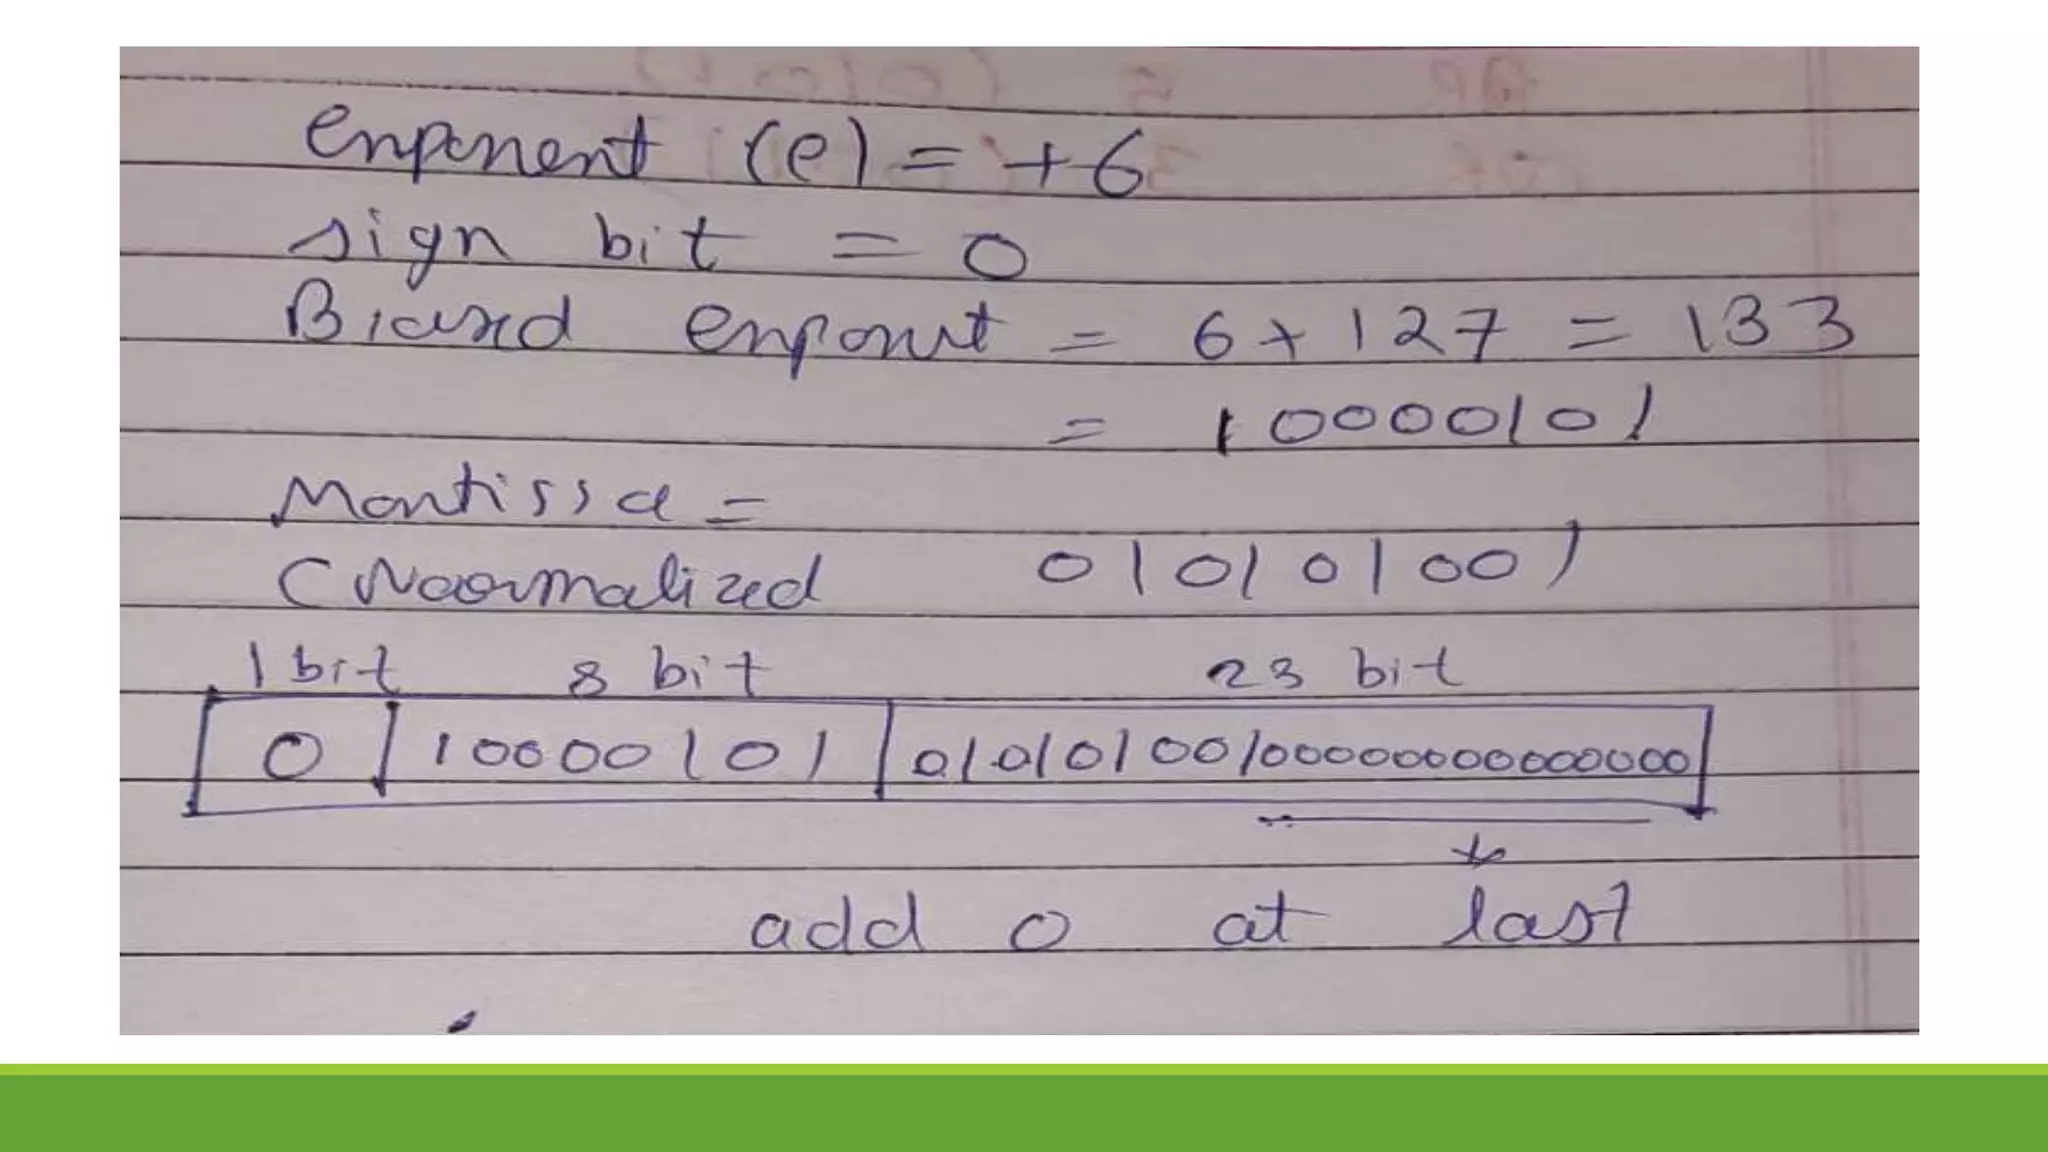 Exponent (e) = +6
sign bit = 0
Biased exponent = 6 + 127 = 133
= 10000101
Mantissa =
(Normalized 010101001
1 bit 8 bit 23 bit
0 10000101 01010100100000000000000
add 0 at last